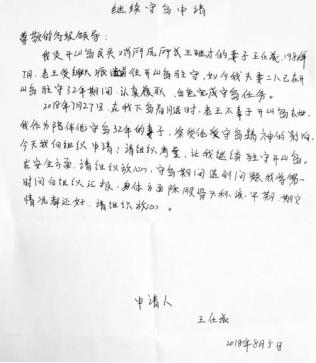 继续守岛申请
尊敬的各级领导:
我是开山岛民兵哨所所长王继才的妻子王仕花,1986年
7月,老王受组织派遣前往开山岛驻守,如今我夫妻二人已在开
山岛驻守32年期间,认真履职,出色完成守岛任务。
2018年7月27日,在我下岛看病时,老王不幸于开山岛去世,
我作为陪伴他守岛32年的妻子,深受他爱守岛精神的影响,
今天我向组织申请:请组织考量,让我继续驻守开山岛。
在安全方面,请组织放心,守岛期间遇到问题,我会第一
时间向组织汇报,身体方面除股骨头积液,早期,其它
情况都还好,请组织放心。
申请人
王仕花
2018年8月5日